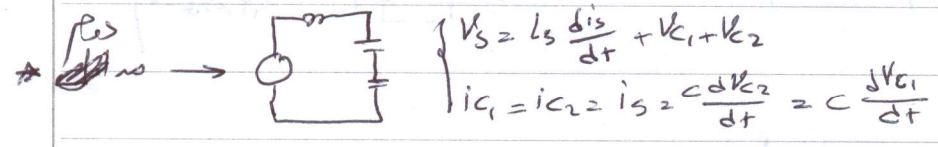 Vs = Ls dis/dt + Vc1 + Vc2
ic1 = ic2 = is = C dVc2/dt = C dVc1/dt